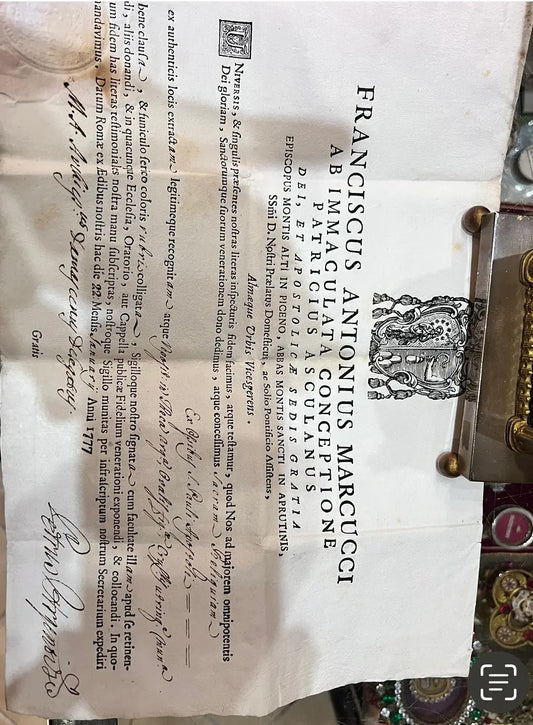 FRANCISCUS ANTONIUS MARCUCCI
AB IMMACULATA CONCEPTIONE
PATRICIUS ASCULANUS
DEI, ET APOSTOLICÆ SEDIS GRATIA
EPISCOPUS MONTIS ALTI IN PICENO, ABBAS MONTIS SANCTI IN APRUTINIS,
SSm̄i D. Noſtri Prælatus Domeſticus, ac Solio Pontificio Aſſiſtens,
Almæque Urbis Vicesgerens.
UNIVERSIS, & ſingulis præſentes noſtras literas inſpecturis fidem facimus, atque teſtamur, quod Nos ad majorem omnipotentis
Dei gloriam, Sanctorumque ſuorum venerationem dono dedimus, atque conceſſimus Sacram Reliquiam
Ex
ex authenticis locis extractam legitimeque recognitam atque
bene clauſa, & funiculo ſerico coloris rubri colligata, Sigilloque noſtro ſignata cum facultate illam apud ſe retinen-
di, aliis donandi, & in quacunque Eccleſia, Oratorio, aut Cappella publicæ Fidelium venerationi exponendi, & collocandi. In quo-
um fidem has literas teſtimoniales noſtra manu ſubſcriptas, noſtroque Sigillo munitas per infraſcriptum noſtrum Secretarium expediri
mandavimus. Datum Romæ ex Ædibus noſtris hac die 22 Menſis January Anni 1777
Gratis